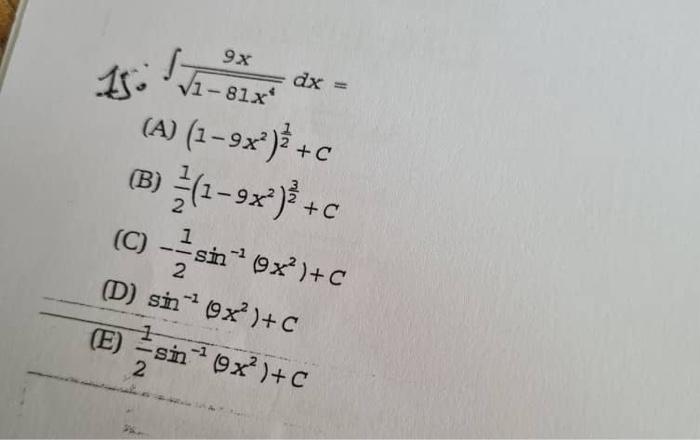 15. ∫ 9x / √(1 − 81x⁴) dx =
(A) (1 − 9x²)^(1/2) + C
(B) 1/2 (1 − 9x²)^(3/2) + C
(C) −1/2 sin⁻¹ (9x²) + C
(D) sin⁻¹ (9x²) + C
(E) 1/2 sin⁻¹ (9x²) + C